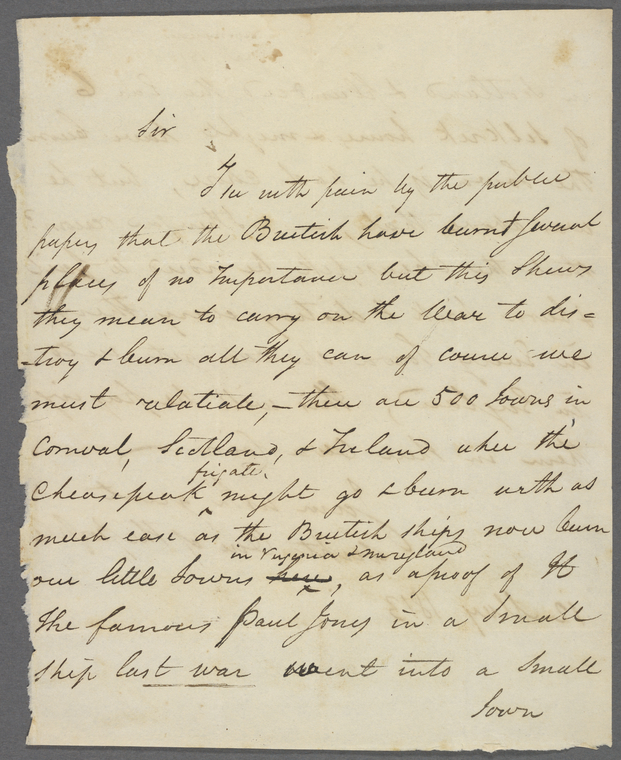 Sir
I see with pain by the public
papers that the British have burnt several
places of no Importance but this Shews
they mean to carry on the War to dis=
=troy & burn all they can of course we
must retaliate, - there are 500 Towns in
Cornwal, Scotland, & Ireland wher the
frigate
Cheasepeak might go & burn with as
much ease as the British ships now burn
in Virginia & Maryland
our little Towns here, as a proof of It
the famous Paul Jones in a Small
ship last war went into a Small
Town